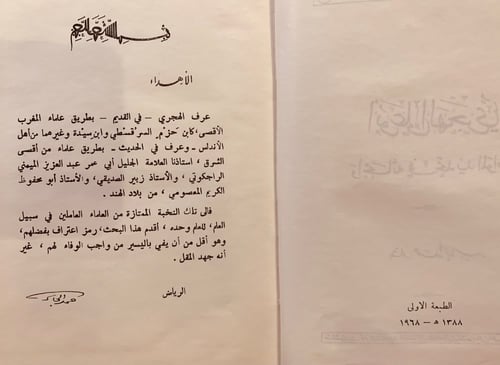 أبو علي الهجري
وأبحاثه في تحديد الموا
الطبعة الاولى
١٣٨٨ ه – ١٩٦٨
بسم الله الرحمن الرحيم
الأهداء
عرف الهجري – في القديم – بطريق علماء المغرب
الأقصى، كابن حَزْم، السرقسطي وابن سيدة وغيرهما من أهل
الأندلس – وعرف في الحديث – بطريق علماء من أقصى
الشرق، استاذنا العلامة الجليل أبي عمر عبد العزيز الميمني
الراجكوتي، والأستاذ زبير الصديقي، والأستاذ أبو محفوظ
الكريم المعصومي، من بلاد الهند.
فالى تلك النخبة الممتازة من العلماء العاملين في سبيل
العلم، للعلم وحده، أقدم هذا البحث، رمز اعتراف بفضلهم،
وهو أقل من أن يفي باليسير من واجب الوفاء لهم، غير
أنه جهد المقل.
الرياض
حمد الجاسر